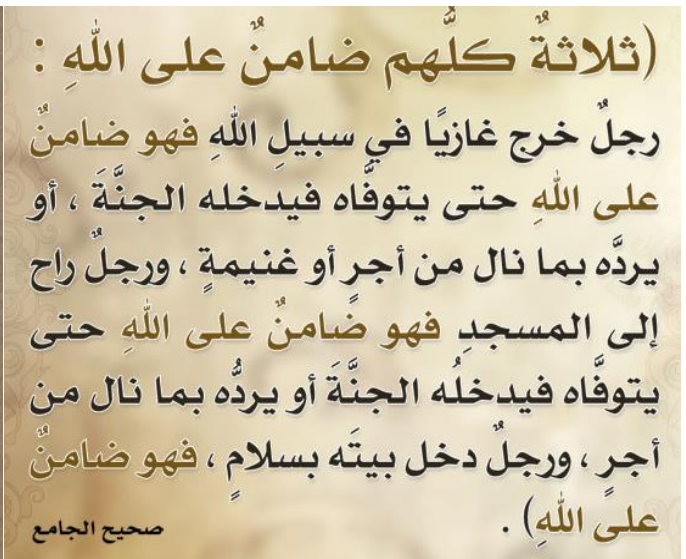 (ثلاثةٌ كلُّهم ضامنٌ على اللهِ :
رجلٌ خرج غازيًا في سبيلِ اللهِ فهو ضامنٌ
على اللهِ حتى يتوفَّاه فيدخله الجنَّةَ ، أو
يردَّه بما نال من أجرٍ أو غنيمةٍ ، ورجلٌ راح
إلى المسجدِ فهو ضامنٌ على اللهِ حتى
يتوفَّاه فيدخلُه الجنَّةَ أو يردُّه بما نال من
أجرٍ ، ورجلٌ دخل بيتَه بسلامٍ ، فهو ضامنٌ
على اللهِ) .
صحيح الجامع